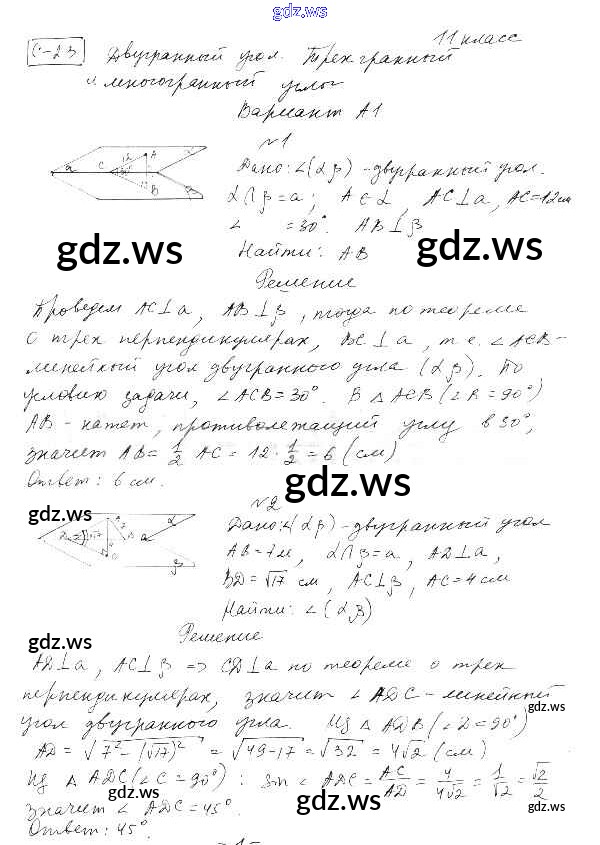 gdz.ws
С-23 Двугранный угол. Трехгранный 11 класс
и многогранный углы
Вариант А1
№1
Дано: ∠(αβ) - двугранный угол.
α∩β=a; A∈α, AC⊥a, AC=12см
∠ =30°. AB⊥β
gdz.ws gdz.ws
Найти: AB
Решение
Проведем AC⊥a, AB⊥β, тогда по теореме
о трех перпендикулярах, BC⊥a, т.е. ∠ACB-
линейный угол двугранного угла (αβ). По
условию задачи, ∠ACB=30°. В △ACB(∠B=90°)
AB - катет, противолежащий углу в 30°,
значит AB= 1/2 AC = 12·1/2 = 6 (см)
Ответ: 6 см.
gdz.ws
№2
gdz.ws
Дано: ∠(αβ) - двугранный угол
AB=7м, α∩β=a, AD⊥a,
BD=√17 см, AC⊥β, AC=4см
Найти: ∠(αβ)
Решение
gdz.ws
AD⊥a, AC⊥β => CD⊥a по теореме о трех
перпендикулярах, значит ∠ADC-линейный
gdz.ws
угол двугранного угла. Из △ADB(∠D=90°)
AD = √7²-(√17)² = √49-17 = √32 = 4√2 (см)
Из △ADC(∠C=90°): sin∠ADC = AC/AD = 4/4√2 = 1/√2 = √2/2
значит ∠ADC=45°.
gdz.ws gdz.ws gdz.ws
Ответ: 45°.